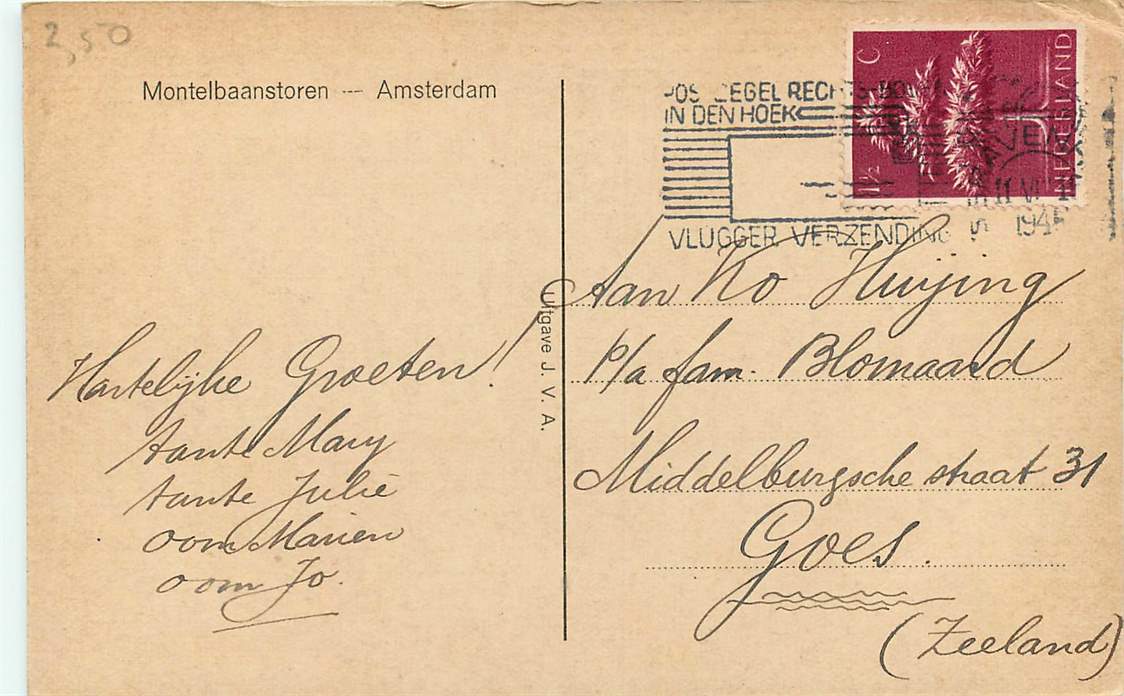 2,50
Montelbaanstoren --- Amsterdam
Hartelijke Groeten!
tante Mary
tante Julie
oom Marien
oom Jo.
Uitgave J. V. A.
RECHTS
IN DEN HOEK
VLUGGER VERZENDING
11 VI
NEDERLAND
1½ C
Aan Ko Huijing
p/a fam. Blomaard
Middelburgsche straat 31
Goes.
(Zeeland)